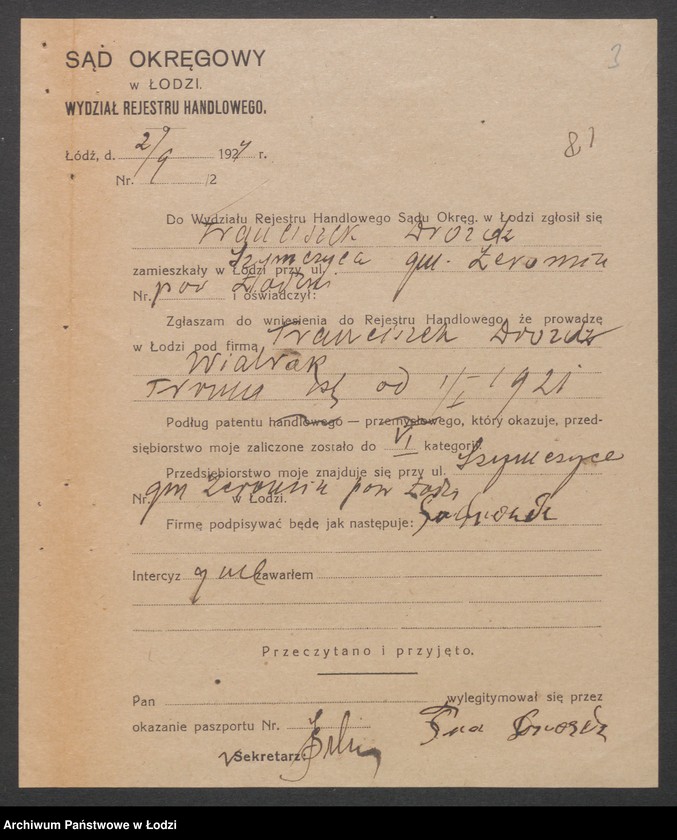 3
SĄD OKRĘGOWY
W ŁODZI.
WYDZIAŁ REJESTRU HANDLOWEGO.
81
Łódź, d. 29/9 1924 r.
Nr. /2
Do Wydziału Rejestru Handlowego Sądu Okręg. w Łodzi zgłosił się
Franciszek Drozdz
zamieszkały w Łodzi przy ul. Szymczyce gm. Żeromin
Nr. pow Łodzi i oświadczył:
Zgłaszam do wniesienia do Rejestru Handlowego, że prowadzę
w Łodzi pod firmą Franciszek Drozdz
Wiatrak
Firma ist od 1/I 1921
Podług patentu handlowego — przemysłowego, który okazuje, przed-
siębiorstwo moje zaliczone zostało do VI kategorii.
Przedsiębiorstwo moje znajduje się przy ul. Szymczyce
Nr. gm Żeromin pow Łodzi w Łodzi.
Firmę podpisywać będę jak następuje:
Intercyz nie zawarłem
Przeczytano i przyjęto.
Pan wylegitymował się przez
okazanie paszportu Nr.
Sekretarz:
Archiwum Państwowe w Łodzi